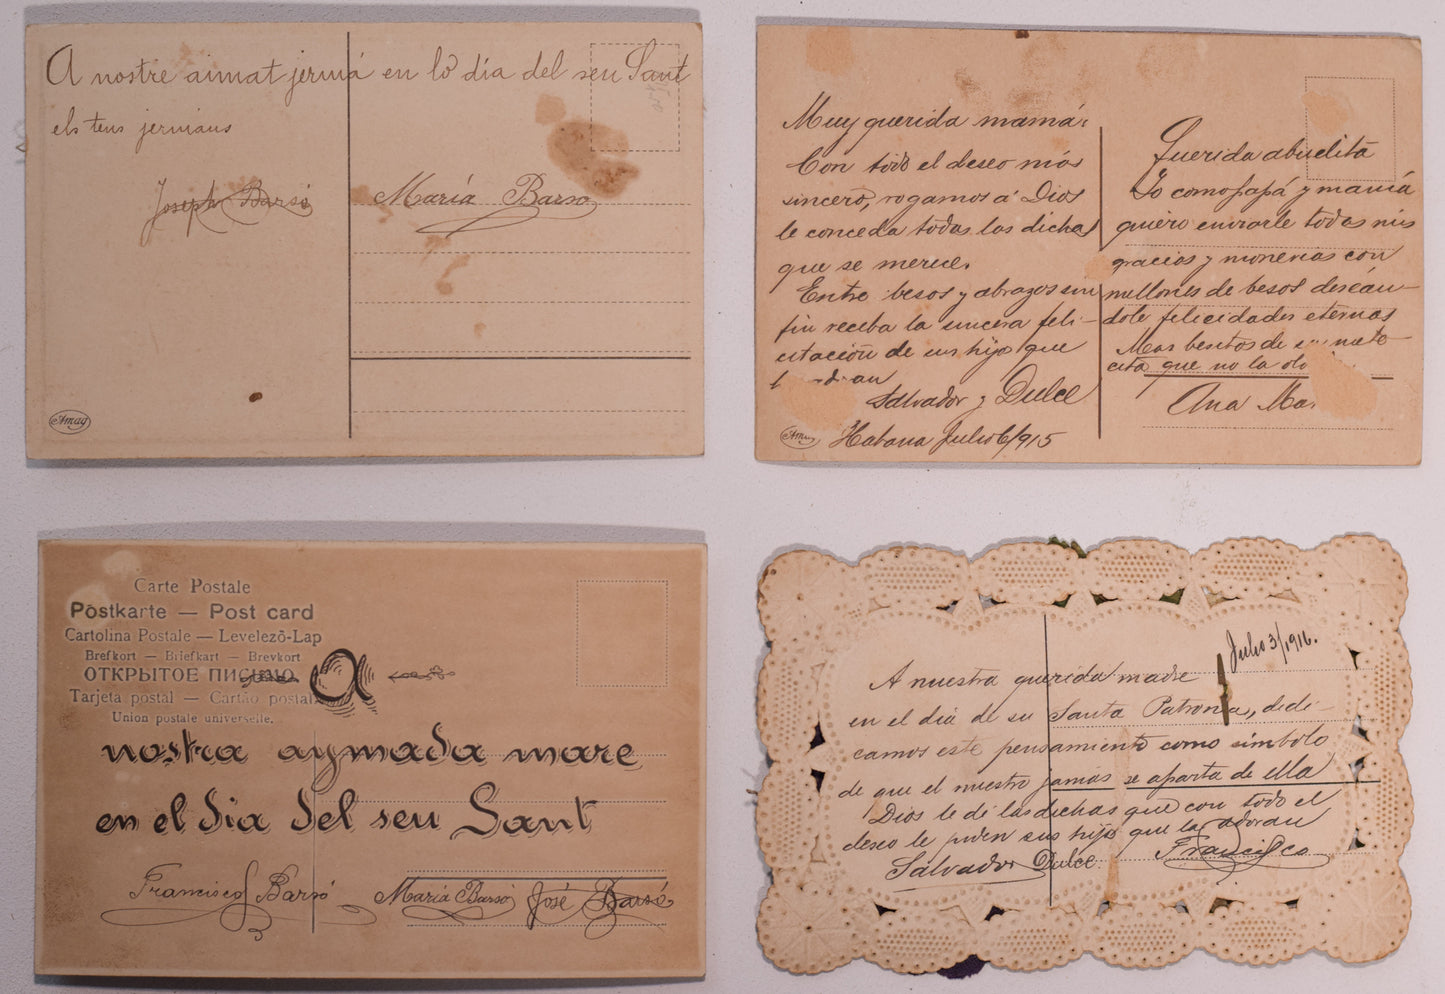 A nostre aimat jermá en lo dia del seu Sant
els teus jermans
Joseph Barsó
María Barsó
Amag
Muy querida mamá:
Con todo el deseo más
sincero, rogamos á Dios
le conceda todas las dichas
que se merece.
Entre besos y abrazos sin
fin receba la sincera feli-
citación de sus hijos que
Salvador y Dulce
Habana Julio 6/915
Amag
Querida abuelita
Yo como papá y mamá
quiero enviarle todas mis
gracias y monerias con
millones de besos deseán-
dole felicidades eternas
Mas besitos de su nieto-
cita que no la olvi
Ana Ma.
Carte Postale
Postkarte — Post card
Cartolina Postale — Levelezõ-Lap
Brefkort — Briefkart — Brevkort
ОТКРЫТОЕ ПИСЬМО
Tarjeta postal — Cartão postal
Union postale universelle.
a
nostra aymada mare
en el dia del seu Sant
Francisco Barsó
María Barsó
José Barsó
Julio 3/1916.
A nuestra querida madre
en el dia de su Santa Patrona, dedi-
camos este pensamiento como símbolo
de que el nuestro jamás se aparta de ella
Dios le dé las dichas que con todo el
deseo le piden sus hijos que la adoran
Salvador Dulce. Francisco